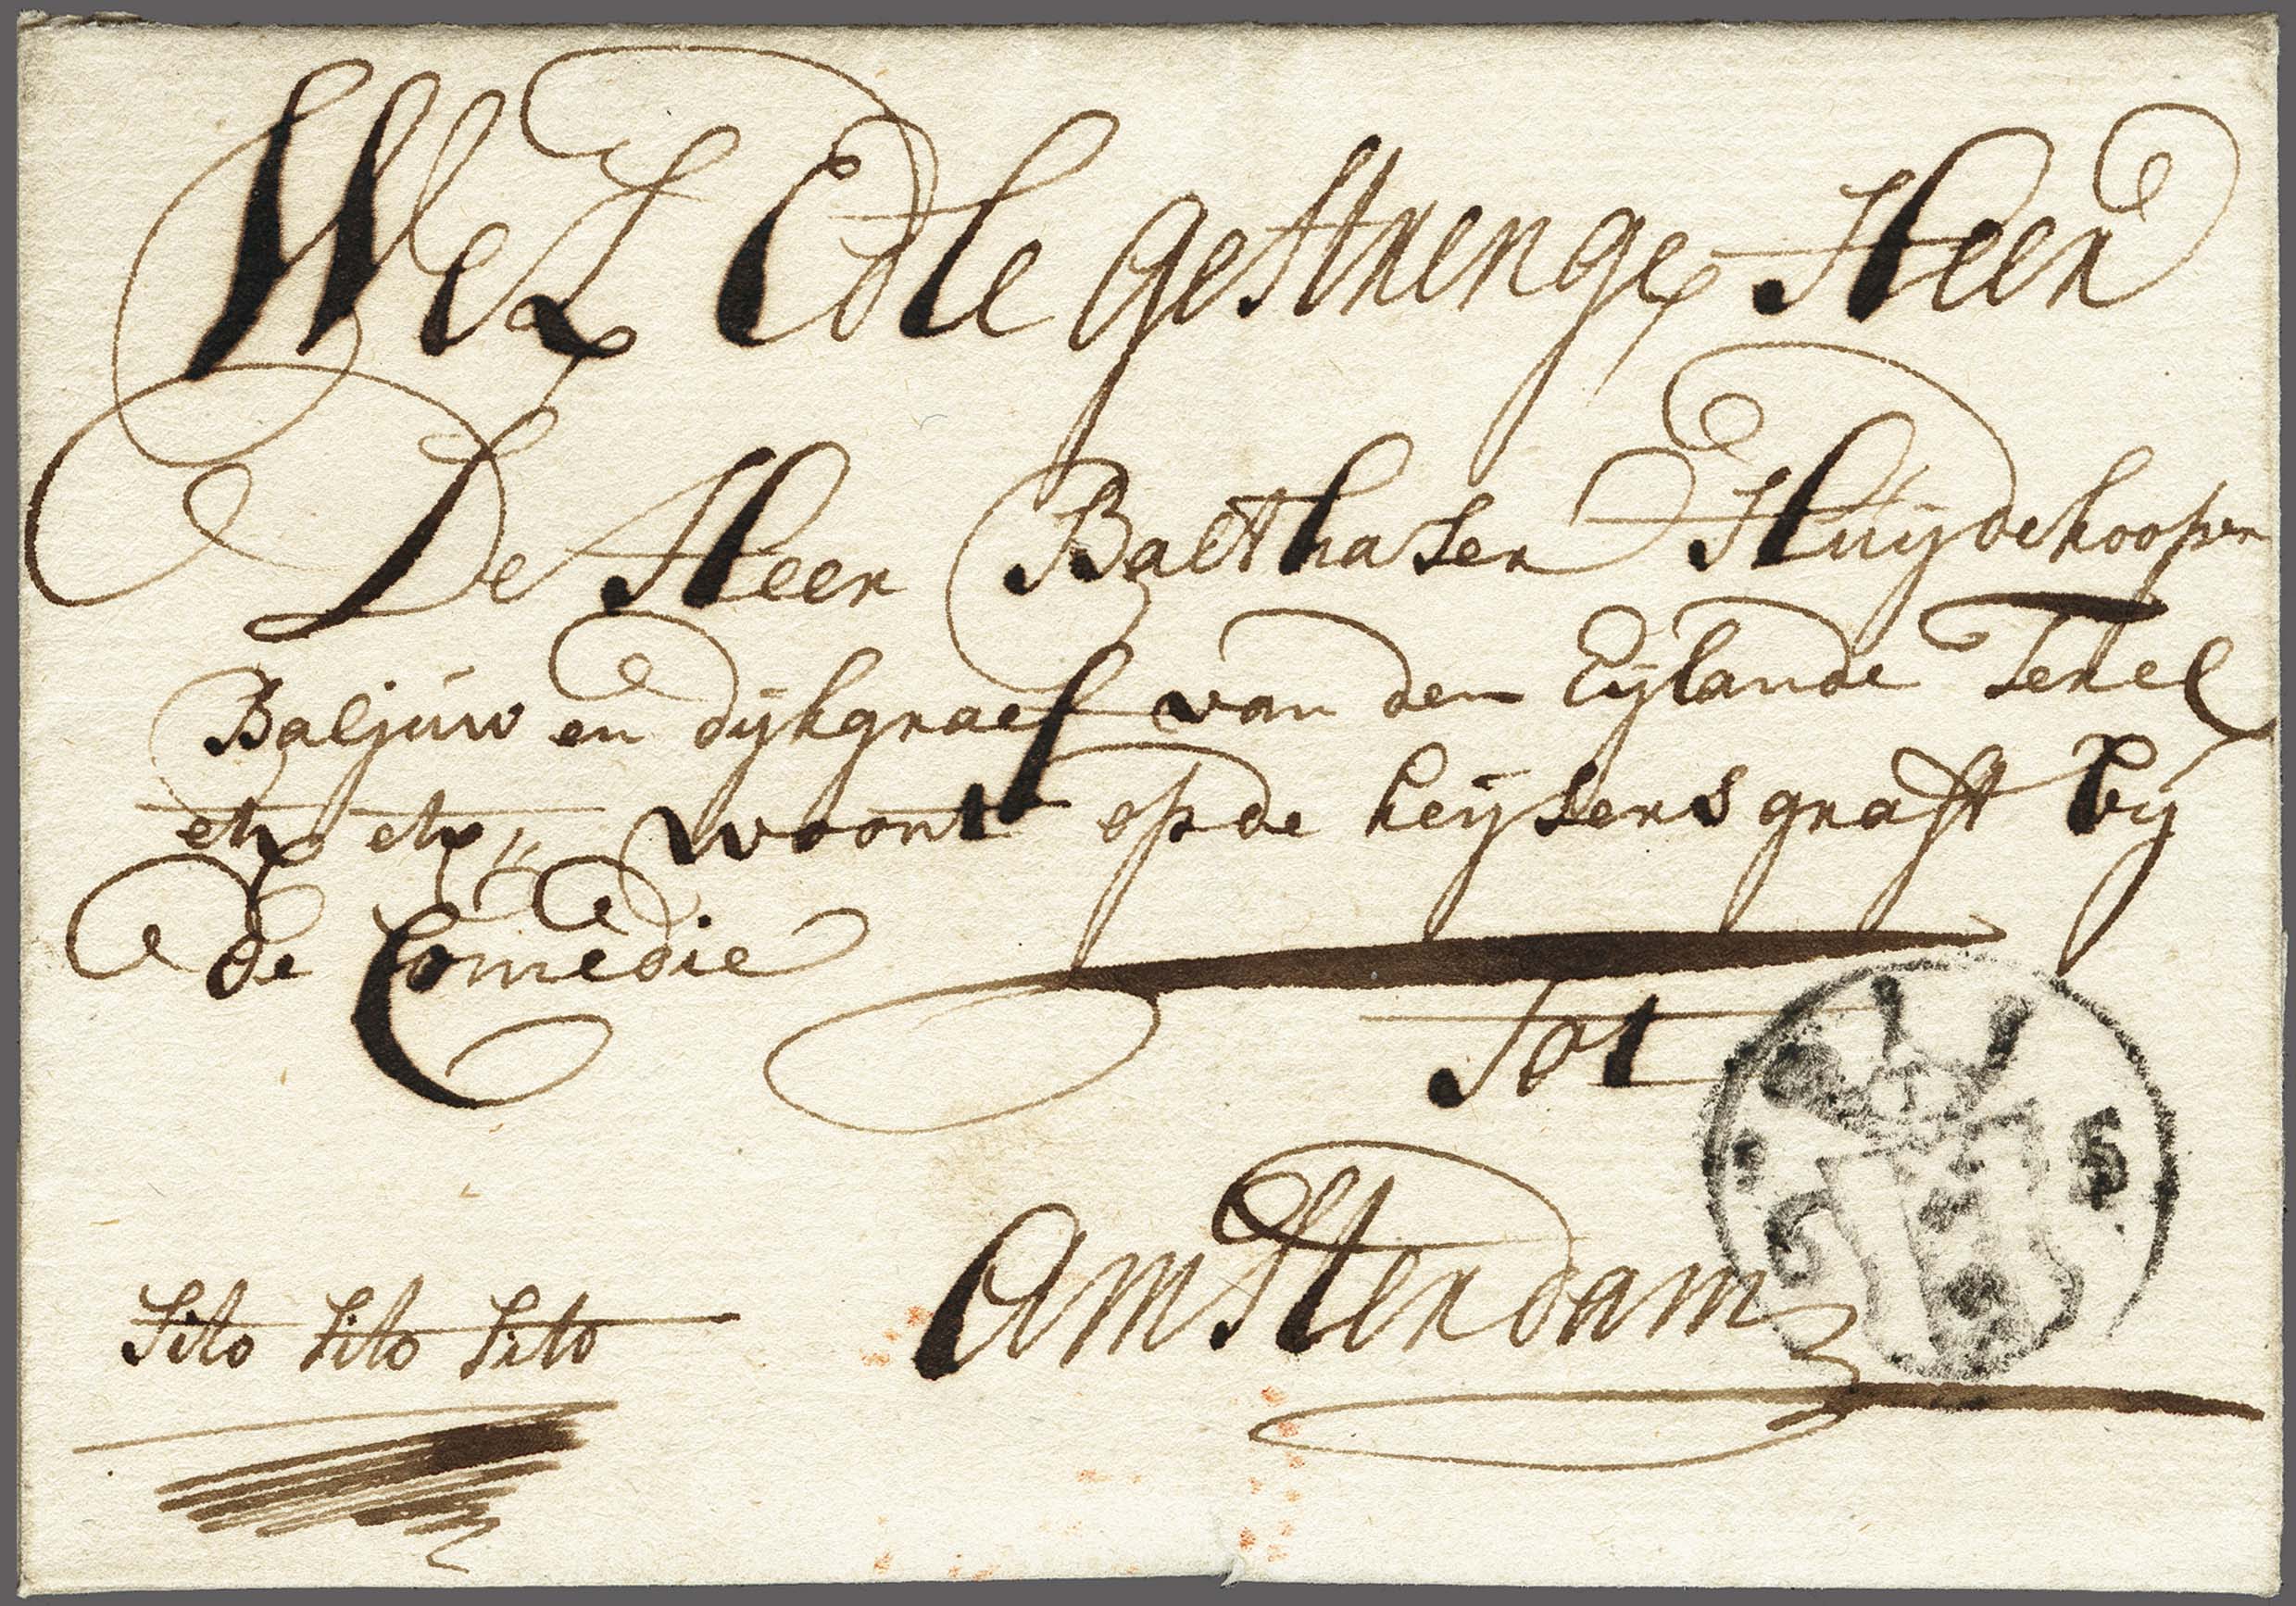 Wel Edle gestrenge Heer
De Heer Balthaser Huÿdekooper
Baljúw en dijkgraef van den Eijlande Texel
etz etz woont op de keijsers graft bij
de Comedie
Tot
Amsterdam
Sito Sito Sito
S